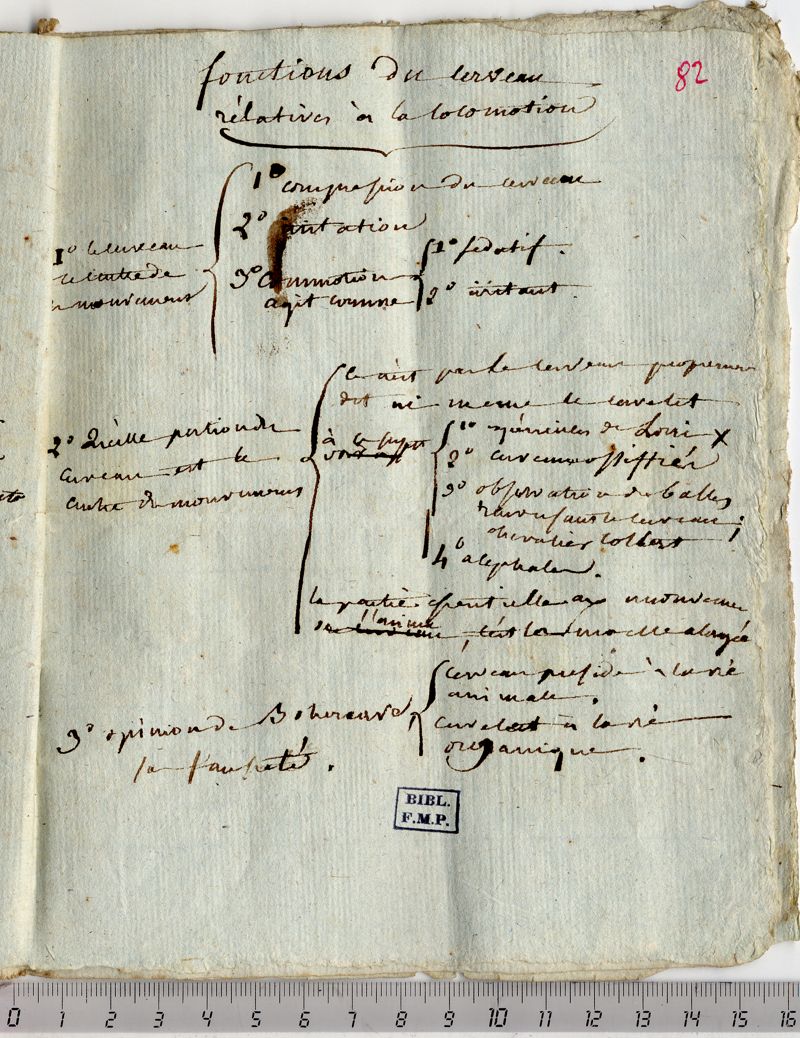 82
fonctions du cerveau
rélatives à la locomotion
1º le cerveau
le centre de
mouvement
1º compression du cerveau
2º irritation
3º commotion
agit comme
1º sedatif.
2º irritant.
2º Quelle portion du
cerveau est le
centre de mouvemens
ce n'est pas le cerveau proprement
dit ni meme le cervelet
à
1º expériences de Lorri X
2º cerveau ossiffiés
3º observation de balles
traversant le cerveau
chevalier Colbert
4º acephales.
la partie essentielle aux mouvemens
l'animal
c'est la moelle alongée
3º opinion de Boheraave,
sa fausseté.
cerveau preside à la vie
animale.
cervelet à la vie
organique.
BIBL.
F.M.P.
0 1 2 3 4 5 6 7 8 9 10 11 12 13 14 15 16